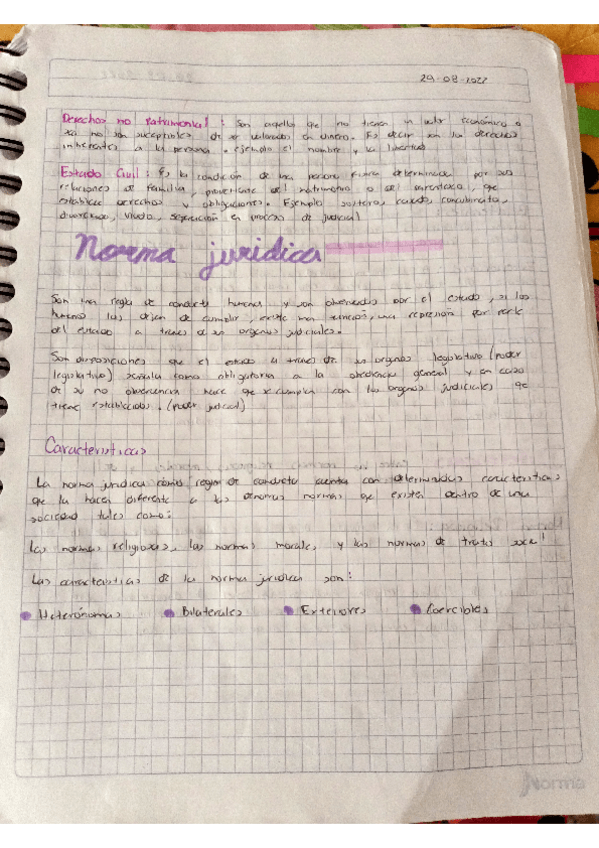 29-08-2022
Derechos no Patrimonial : Son aquello que no tienen un valor económico o
xa no son suceptibles de ser valorados en dinero. Es decir son los derechos
inherentes a la persona . ejemplo el nombre y la libertad
Estado Civil : Es la condición de una persona física determinada por sus
relaciones de familia, proveniente del matrimonio o del parentesco, que
establece derechos y obligaciones. Ejemplo soltero, casado, concubinato,
divorciado, viudo, separación en proceso de judicial
Norma juridica
Son una regla de conducta humana y son obtenidas por el estado, si los
humanos las dejan de cumplir, existe una sanción, una represión por parte
del estado a traves de sus organos judiciales.
Son disposiciones que el estado a traves de sus organos legislativo (poder
legislativo) señala como obligatoria a la obediencia general y en caso
de su no observancia hace que se cumplan con los organos judiciales que
tiene establecidos. (poder judicial)
Caracteristicas
La norma juridica como regla de conducta cuenta con determinadas caracteristicas
que la hacen diferente a las demas normas que existen dentro de una
sociedad tales como:
Las normas religiosas, las normas morales, y las normas de trato social
Las caracteristicas de la norma juridica son:
Heterónomas Bilaterales Exteriores Coercibles
Norma